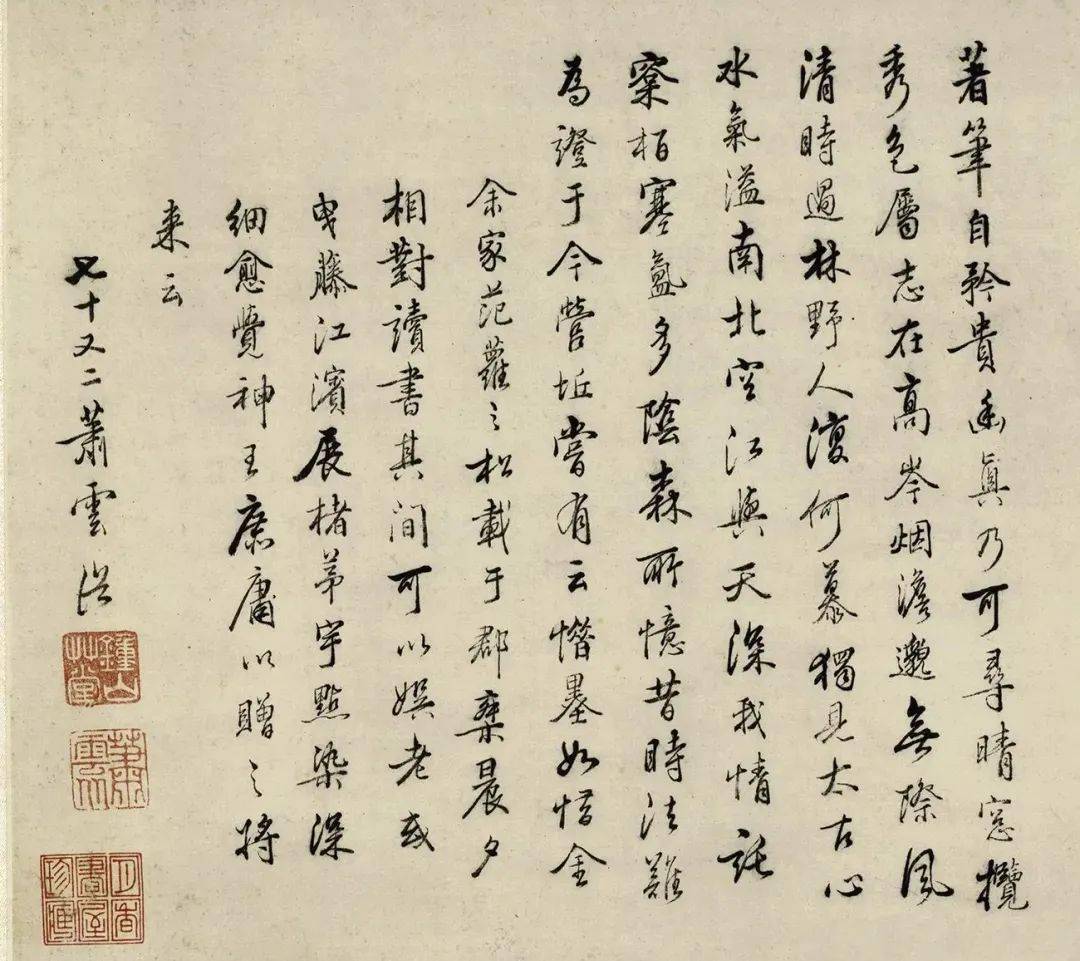 著筆自矜貴幽真乃可尋晴窓攬
秀色屬志在高岑烟澹邈無際風
清時過林野人復何慕獨見太古心
水氣溢南北空江與天深我情託
栢寒多陰森所憶昔時法難
為證于今營坵嘗有云惜墨如惜金
余家范蘿之松載于郡乗晨夕
相對讀書其間可以娯老或
曳藤江濱展楮茅宇點染深
細愈覺神王庸以贈之將
来云
七十又二蕭雲從